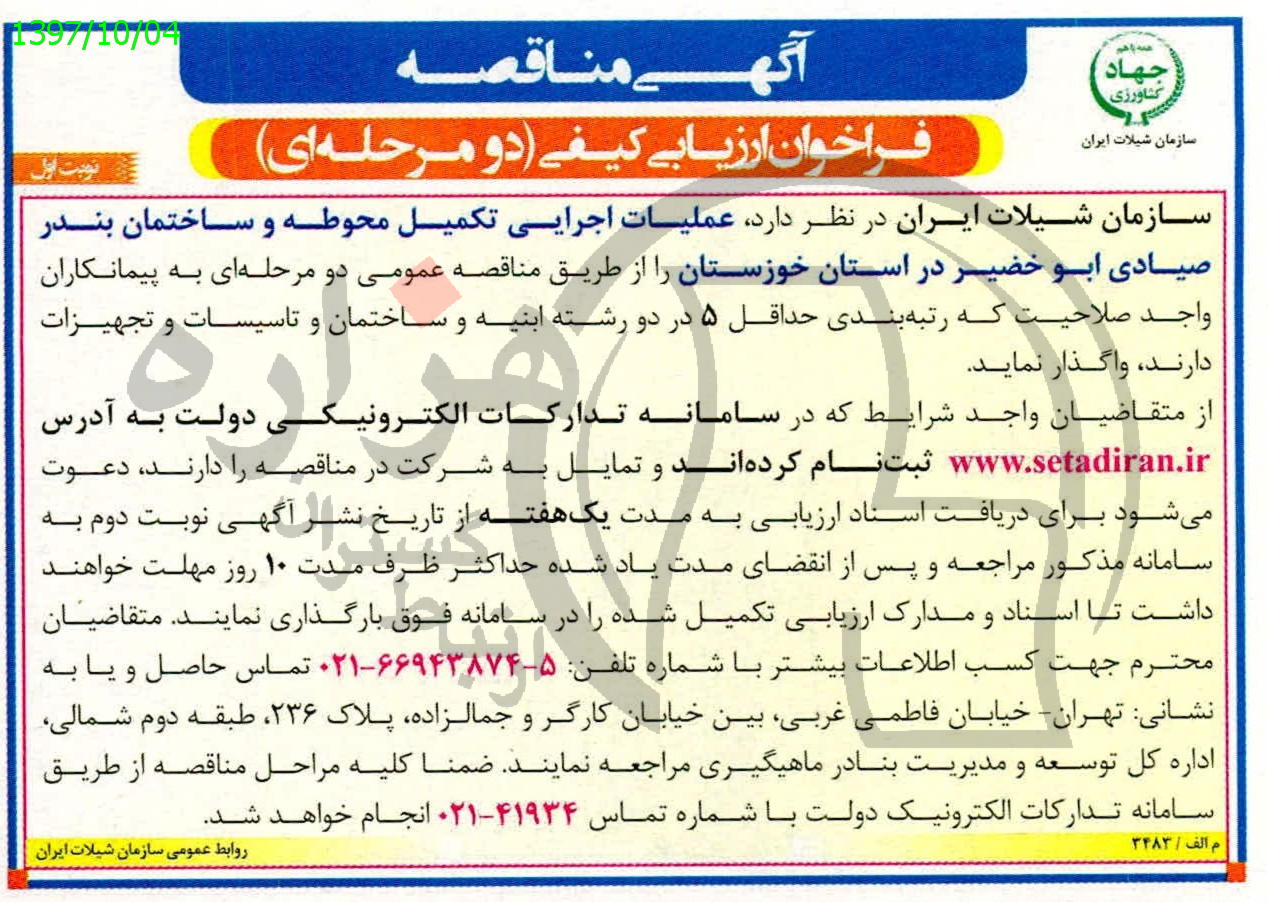 1397/10/04
آگهی مناقصه
همه با هم
جهاد
کشاورزی
سازمان شیلات ایران
فراخوان ارزیابی کیفی (دو مرحله‌ای)
نوبت اول
سازمان شیلات ایران در نظر دارد، عملیات اجرایی تکمیل محوطه و ساختمان بندر
صیادی ابو خضیر در استان خوزستان را از طریق مناقصه عمومی دو مرحله‌ای به پیمانکاران
واجد صلاحیت که رتبه‌بندی حداقل ۵ در دو رشته ابنیه و ساختمان و تاسیسات و تجهیزات
دارند، واگذار نماید.
از متقاضیان واجد شرایط که در سامانه تدارکات الکترونیکی دولت به آدرس
www.setadiran.ir ثبت‌نام کرده‌اند و تمایل به شرکت در مناقصه را دارند، دعوت
می‌شود برای دریافت اسناد ارزیابی به مدت یک‌هفته از تاریخ نشر آگهی نوبت دوم به
سامانه مذکور مراجعه و پس از انقضای مدت یاد شده حداکثر ظرف مدت ۱۰ روز مهلت خواهند
داشت تا اسناد و مدارک ارزیابی تکمیل شده را در سامانه فوق بارگذاری نمایند. متقاضیان
محترم جهت کسب اطلاعات بیشتر با شماره تلفن: ۵-۶۶۹۴۳۸۷۴-۰۲۱ تماس حاصل و یا به
نشانی: تهران- خیابان فاطمی غربی، بین خیابان کارگر و جمالزاده، پلاک ۲۳۶، طبقه دوم شمالی،
اداره کل توسعه و مدیریت بنادر ماهیگیری مراجعه نمایند. ضمنا کلیه مراحل مناقصه از طریق
سامانه تدارکات الکترونیک دولت با شماره تماس ۴۱۹۳۴-۰۲۱ انجام خواهد شد.
م الف / ۳۴۸۳
روابط عمومی سازمان شیلات ایران
هزاره
گسترش
ارتباط